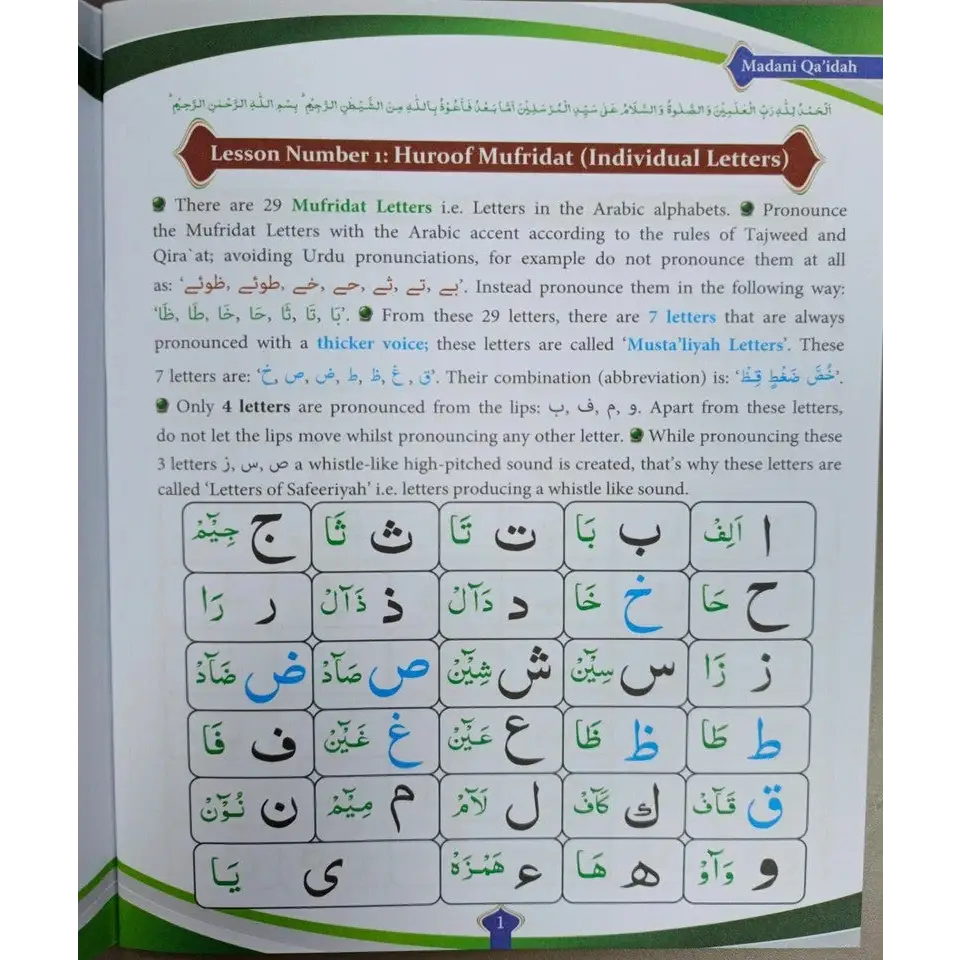 Madani Qa'idah
اَلْحَمْدُ لِلّٰهِ رَبِّ الْعٰلَمِيْنَ وَ الصَّلٰوةُ وَ السَّلَامُ عَلٰى سَيِّدِ الْمُرْسَلِيْنَ اَمَّا بَعْدُ فَاَعُوْذُ بِاللّٰهِ مِنَ الشَّيْطٰنِ الرَّجِيْمِ ؕ بِسْمِ اللّٰهِ الرَّحْمٰنِ الرَّحِيْمِ ؕ
Lesson Number 1: Huroof Mufridat (Individual Letters)
There are 29 Mufridat Letters i.e. Letters in the Arabic alphabets. Pronounce
the Mufridat Letters with the Arabic accent according to the rules of Tajweed and
Qira`at; avoiding Urdu pronunciations, for example do not pronounce them at all
as: ‘بے, تے, ثے, حے, خے, طوئے, ظوئے’. Instead pronounce them in the following way:
‘بَا, تَا, ثَا, حَا, خَا, طَا, ظَا’. From these 29 letters, there are 7 letters that are always
pronounced with a thicker voice; these letters are called ‘Musta’liyah Letters’. These
7 letters are: ‘خ, ص, ض, ط, ظ, غ, ق’. Their combination (abbreviation) is: ‘خُصَّ ضَغْطٍ قِظْ’.
Only 4 letters are pronounced from the lips: ب, ف, م, و. Apart from these letters,
do not let the lips move whilst pronouncing any other letter. While pronouncing these
3 letters ز, س, ص a whistle-like high-pitched sound is created, that’s why these letters are
called ‘Letters of Safeeriyah’ i.e. letters producing a whistle like sound.
ا اَلِفْ ب بَا ت تَا ث ثَا ج جِيْٓمْ
ح حَا خ خَا د دَآلْ ذ ذَآلْ ر رَا
ز زَا س سِيْٓنْ ش شِيْٓنْ ص صَآدْ ض ضَآدْ
ط طَا ظ ظَا ع عَيْٓنْ غ غَيْٓنْ ف فَا
ق قَآفْ ك كَآفْ ل لَآمْ م مِيْٓمْ ن نُوْٓنْ
و وَآوْ ه هَا ء هَمْزَهْ ى يَا
1